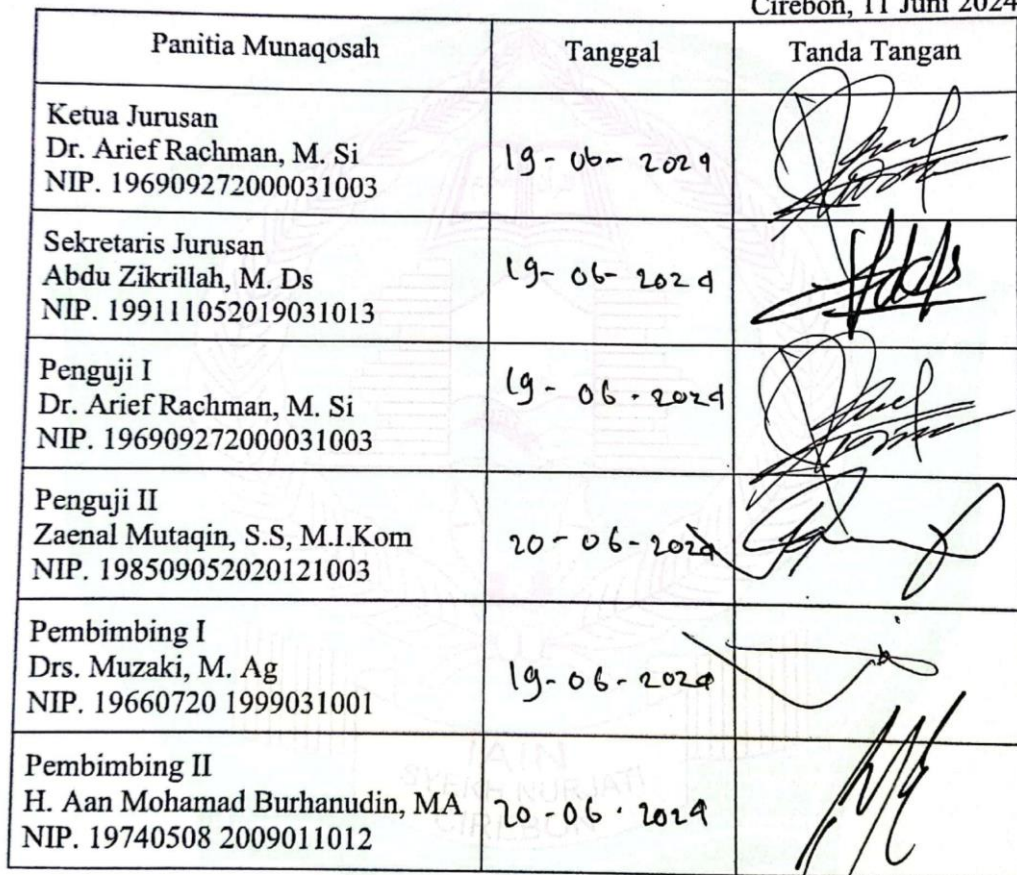 Cirebon, 11 Juni 2024
Panitia Munaqosah Tanggal Tanda Tangan
Ketua Jurusan
Dr. Arief Rachman, M. Si
NIP. 196909272000031003
19-06-2024
Sekretaris Jurusan
Abdu Zikrillah, M. Ds
NIP. 199111052019031013
19-06-2024
Penguji I
Dr. Arief Rachman, M. Si
NIP. 196909272000031003
19-06-2024
Penguji II
Zaenal Mutaqin, S.S, M.I.Kom
NIP. 198509052020121003
20-06-2024
Pembimbing I
Drs. Muzaki, M. Ag
NIP. 19660720 1999031001
19-06-2024
Pembimbing II
H. Aan Mohamad Burhanudin, MA
NIP. 19740508 2009011012
20-06-2024
IAIN
SYEKH NURJATI
CIREBON